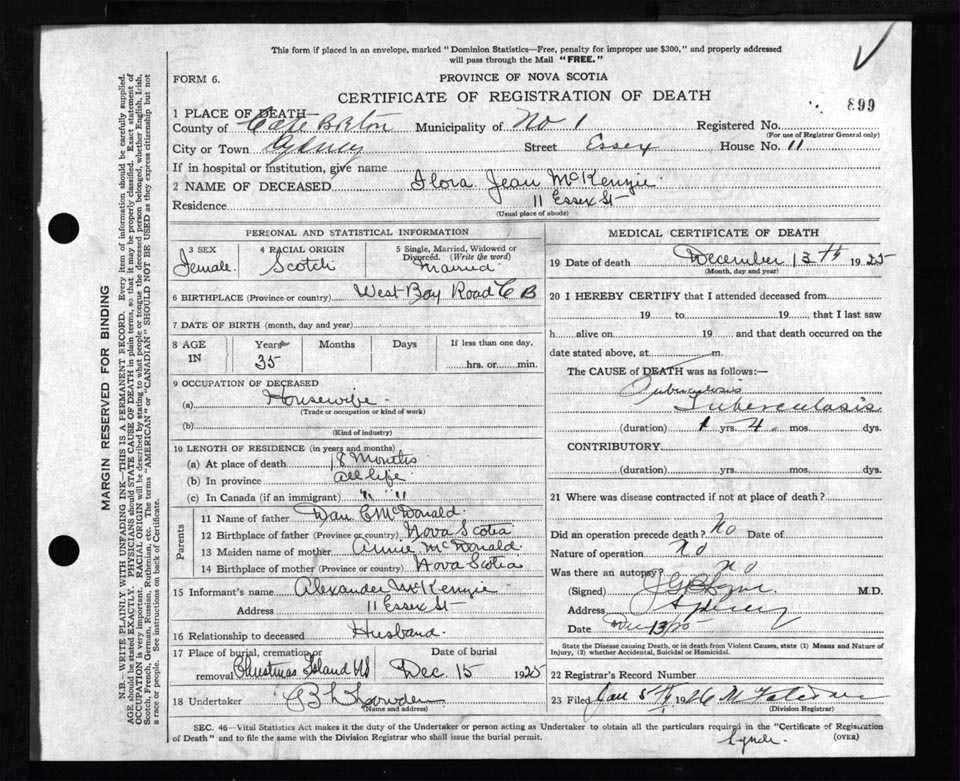 This form if placed in an envelope, marked "Dominion Statistics—Free, penalty for improper use $300," and properly addressed
will pass through the Mail "FREE."
FORM 6.
PROVINCE OF NOVA SCOTIA
CERTIFICATE OF REGISTRATION OF DEATH
899
1 PLACE OF DEATH—
County of Cape Breton Municipality of No 1 Registered No.
(For use of Registrar General only)
City or Town Sydney Street Essex House No. 11
If in hospital or institution, give name
2 NAME OF DECEASED Flora Jean McKenzie
Residence 11 Essex St
(Usual place of abode)
PERSONAL AND STATISTICAL INFORMATION
3 SEX 4 RACIAL ORIGIN 5 Single, Married, Widowed or
Divorced. (Write the word)
Female. Scotch Married
6 BIRTHPLACE (Province or country) West Bay Road C B
7 DATE OF BIRTH (month, day and year)
8 AGE IN Years Months Days If less than one day,
35 hrs. or min.
9 OCCUPATION OF DECEASED
(a) Housewife
(Trade or occupation or kind of work)
(b)
(Kind of industry)
10 LENGTH OF RESIDENCE (in years and months)
(a) At place of death 18 Months
(b) In province all life
(c) In Canada (if an immigrant) " "
Parents
11 Name of father Dan C McDonald.
12 Birthplace of father (Province or country) Nova Scotia
13 Maiden name of mother Annie McDonald.
14 Birthplace of mother (Province or country) Nova Scotia
15 Informant's name Alexander McKenzie
Address 11 Essex St
16 Relationship to deceased Husband.
17 Place of burial, cremation or removal Date of burial
Christmas Island NS Dec. 15 1925
18 Undertaker
(Name and address)
MEDICAL CERTIFICATE OF DEATH
19 Date of death December 13th 1925
(Month, day and year)
20 I HEREBY CERTIFY that I attended deceased from
19 to 19 that I last saw
h alive on 19 and that death occurred on the
date stated above, at m.
The CAUSE of DEATH was as follows:—
Tuberculosis
Tuberculosis
(duration) 1 yrs. 4 mos. dys.
CONTRIBUTORY.
(duration) yrs. mos. dys.
21 Where was disease contracted if not at place of death?
Did an operation precede death? No Date of
Nature of operation No
Was there an autopsy? No
(Signed) M.D.
Address Sydney
Date Dec 13/25
State the Disease causing Death, or in death from Violent Causes, state (1) Means and Nature of
Injury, (2) whether Accidental, Suicidal or Homicidal.
22 Registrar's Record Number
23 Filed Jan 5th 1926
(Division Registrar)
SEC. 46—Vital Statistics Act makes it the duty of the Undertaker or person acting as Undertaker to obtain all the particulars required in the "Certificate of Registration
of Death" and to file the same with the Division Registrar who shall issue the burial permit.
(OVER)
MARGIN RESERVED FOR BINDING
N.B.—WRITE PLAINLY WITH UNFADING INK—THIS IS A PERMANENT RECORD. Every item of information should be carefully supplied.
AGE should be stated EXACTLY. PHYSICIANS should STATE CAUSE OF DEATH in plain terms, so that it may be properly classified. Exact statement of
OCCUPATION is very important. RACIAL ORIGIN will be described by stating to what people or tongue the deceased person belonged, whether English, Irish,
Scotch, French, German, Russian, Ruthenian, etc. The terms "AMERICAN" or "CANADIAN" SHOULD NOT BE USED as they express citizenship but not
a race or people. See instructions on back of Certificate.